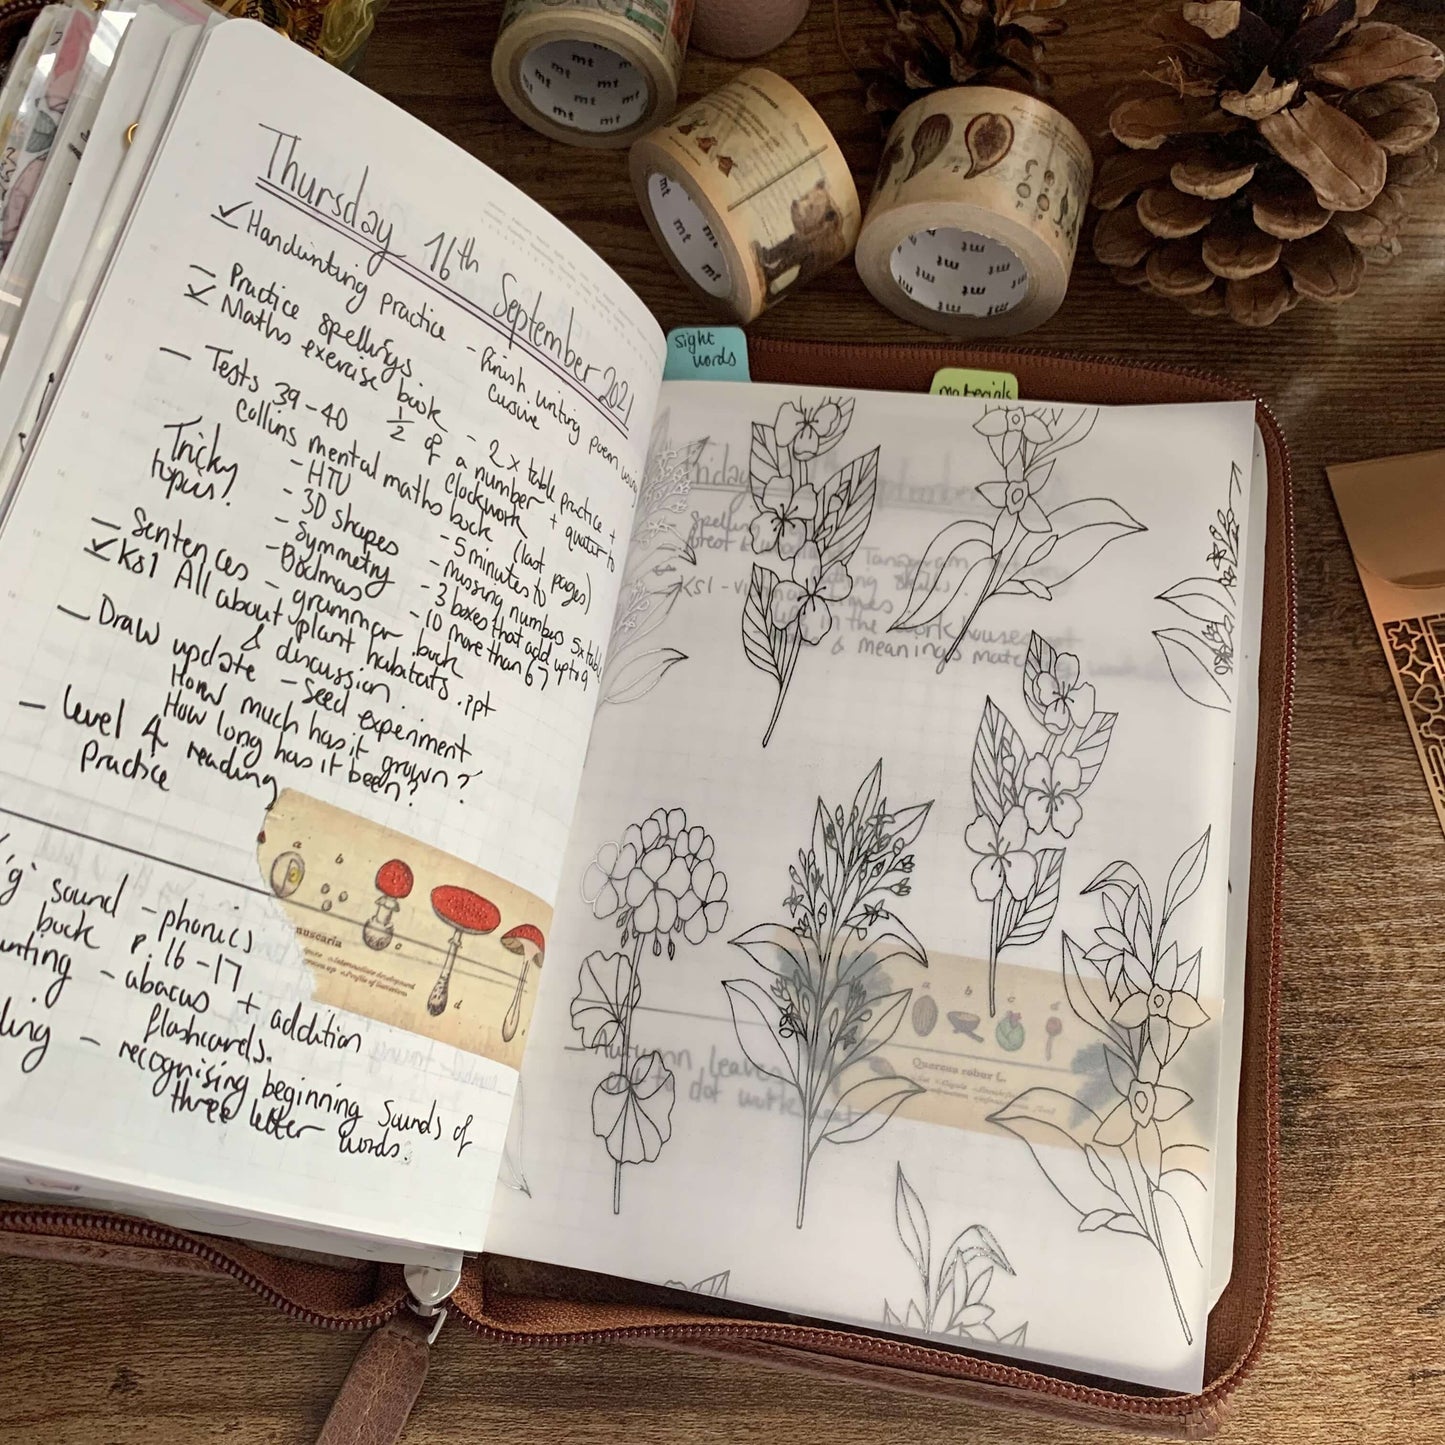 Thursday 16th September 2021
✓ Handwriting practice - finish writing poem using
cursive
- Practice spellings.
✓ Maths exercise book - 2 x table practice +
1/2 of a number + quarter to
clockwork
- Tests 39-40 Collins mental maths book (last pages)
Tricky
topics!
- HTU
- 3D shapes
- Symmetry
- Bodmas
- 5 minutes to
- missing numbers 5x table
- 3 boxes that add up to 9
- 10 more than 67
- Sentences - grammar book
✓ KS1 All about plant habitats .ppt
& discussion.
- Draw update - Seed experiment
How much has it grown?
How long has it been?
- level 4 reading
Practice
'g' sound - phonics
book p. 16-17
- abacus + addition
flashcards.
- recognising beginning sounds of
three letter words.
a
b
c
d
muscaria
Intermediate development
Profile of
sight
words
materials
Friday
September
- spelling
Tangram
KS1 -
life in the workhouse
& meanings
- Autumn leaves
dot to dot worksheet
a
b
c
d
Quercus robur L.
mt
mt
mt